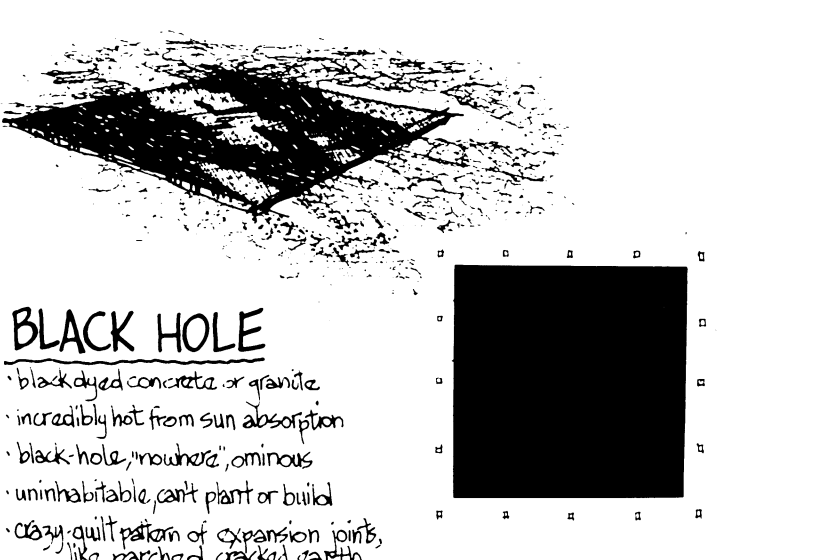 BLACK HOLE
· black dyed concrete or granite
· incredibly hot from sun absorption
· black-hole, "nowhere", ominous
· uninhabitable, can't plant or build
· crazy-quilt pattern of expansion joints,
like parched cracked earth